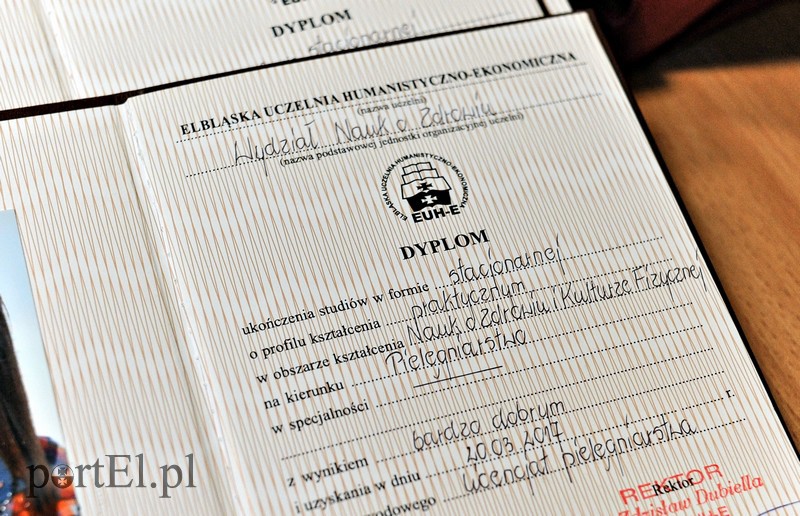 DYPLOM
stacjonarnej
ELBLĄSKA UCZELNIA HUMANISTYCZNO-EKONOMICZNA
(nazwa uczelni)
Wydział Nauk o Zdrowiu
(nazwa podstawowej jednostki organizacyjnej uczelni)
ELBLĄSKA UCZELNIA HUMANISTYCZNO-EKONOMICZNA
EUH-E
DYPLOM
ukończenia studiów w formie stacjonarnej
o profilu kształcenia praktycznym
w obszarze kształcenia Nauk o Zdrowiu i Kulturze Fizycznej
na kierunku Pielęgniarstwo
w specjalności
z wynikiem bardzo dobrym
i uzyskania w dniu 20.03.2017 r.
odowego licencjat pielęgniarstwa
REKTOR
Rektor
Zdzisław Dubiella
portEl.pl